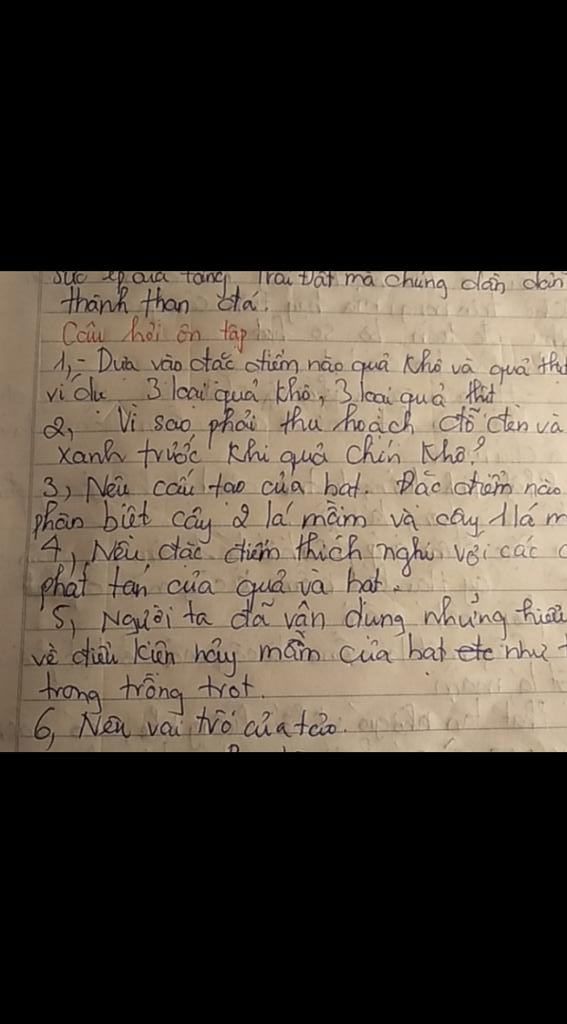 sức ép của tầng Trái Đất mà chúng dần dần
thành than đá.
Câu hỏi ôn tập
1, - Dựa vào đặc điểm nào quả khô và quả
ví dụ 3 loại quả khô, 3 loại quả thịt
2, Vì sao phải thu hoạch đỗ đen và
xanh trước khi quả chín khô?
3, Nêu cấu tạo của hạt. Đặc điểm nào
phân biệt cây 2 lá mầm và cây 1 lá m
4, Nêu đặc điểm thích nghi với các c
phát tán của quả và hạt.
5, Người ta đã vận dụng những hiểu
về điều kiện nảy mầm của hạt như
trong trồng trọt.
6, Nêu vai trò của tảo.